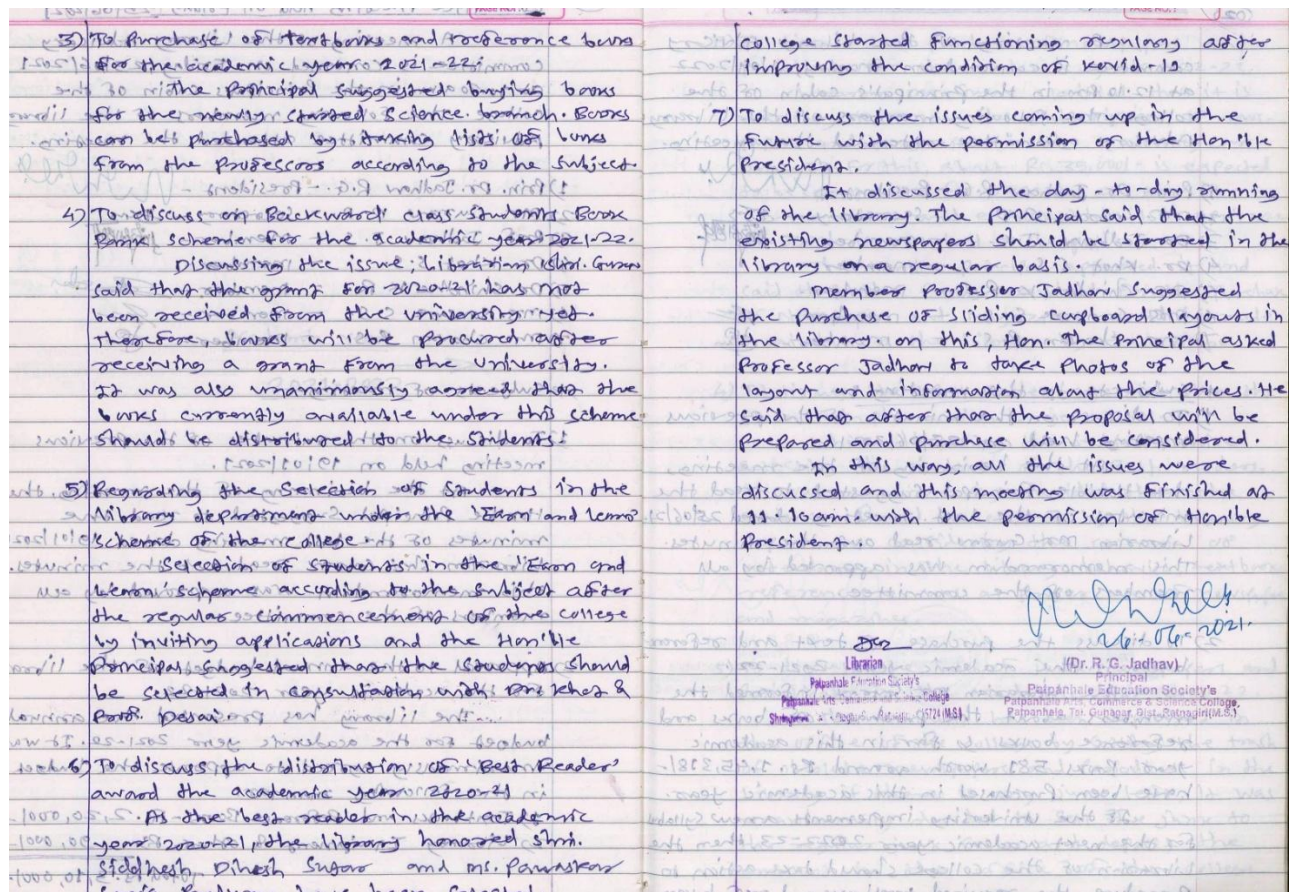 3) To Purchase of textbooks and reference books
for the academic year 2021-22.
The Principal suggested buying books
for the newly started Science branch. Books
can be purchased by taking lists of books
from the Professors according to the subject.
4) To discuss on Backward class students Book
Bank scheme for the academic year 2021-22.
Discussing the issue, Librarian Shri.
said that the grant for 2020-21 has not
been received from the university yet.
Therefore, books will be procured after
receiving a grant from the University.
It was also unanimously agreed that the
books currently available under this scheme
should be distributed to the students
5) Regarding the Selection of Students in the
library department under the 'Earn and learn'
scheme of the college
Selection of students in the 'Earn and
Learn' scheme according to the subject after
the regular commencement of the college
by inviting applications and the Hon'ble
Principal suggested that the students should
be selected in consultation with Dr. Khot &
Prof. Desai
6) To discuss the distribution of 'Best Reader'
award the academic year 2020-21
As the best reader in the academic
year 2020-21, the library honored Shri.
Siddhesh Dinesh Sutar and Ms. Pawaskar
have been selected
college started functioning regulary after
improving the condition of kovid-19
7) To discuss the issues coming up in the
future with the permission of the Hon'ble
President.
It discussed the day-to-day running
of the library. The Principal said that the
existing newspapers should be started in the
library on a regular basis.
Member Professor Jadhav suggested
the purchase of sliding cupboard layouts in
the library. on this, Hon. The Principal asked
Professor Jadhav to take Photos of the
layout and information about the prices. He
said that after that the proposal will be
prepared and purchase will be considered.
In this way, all the issues were
discussed and this meeting was finished at
11.10am with the permission of Hon'ble
President.
26.06.2021.
Librarian
Patpanhale Education Society's
Patpanhale Arts, Commerce & Science College
(M.S.)
(Dr. R. G. Jadhav)
Principal
Patpanhale Education Society's
Patpanhale Arts, Commerce & Science College,
Patpanhale, Tal. Guhagar, Dist. Ratnagiri(M.S.)